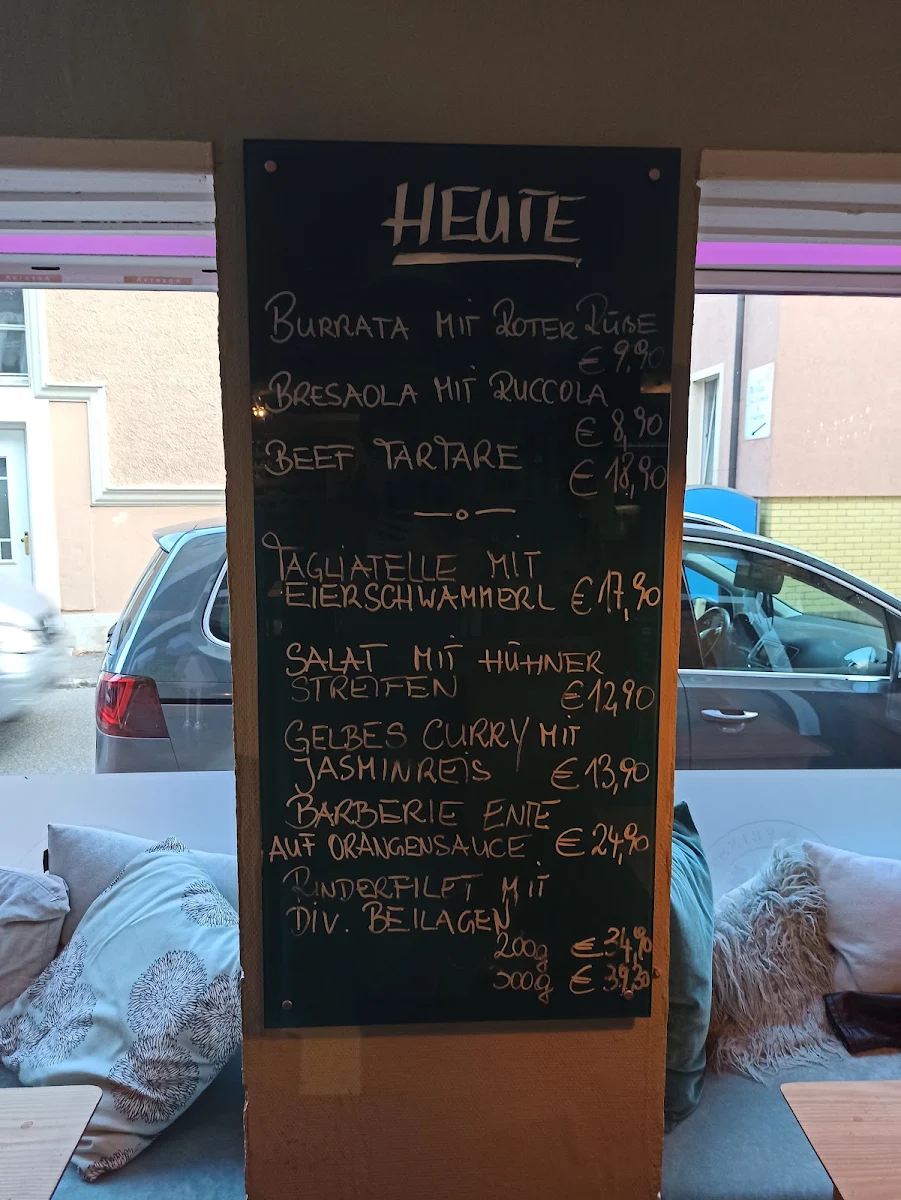 HEUTE
BURRATA MIT ROTER RÜBE
€ 9,90
BRESAOLA MIT RUCCOLA
€ 8,90
BEEF TARTARE
€ 18,90
TAGLIATELLE MIT
EIERSCHWAMMERL € 17,90
SALAT MIT HÜHNER
STREIFEN € 12,90
GELBES CURRY MIT
JASMINREIS € 13,90
BARBERIE ENTE
AUF ORANGENSAUCE € 24,90
RINDERFILET MIT
DIV. BEILAGEN
200g € 34,90
300g €